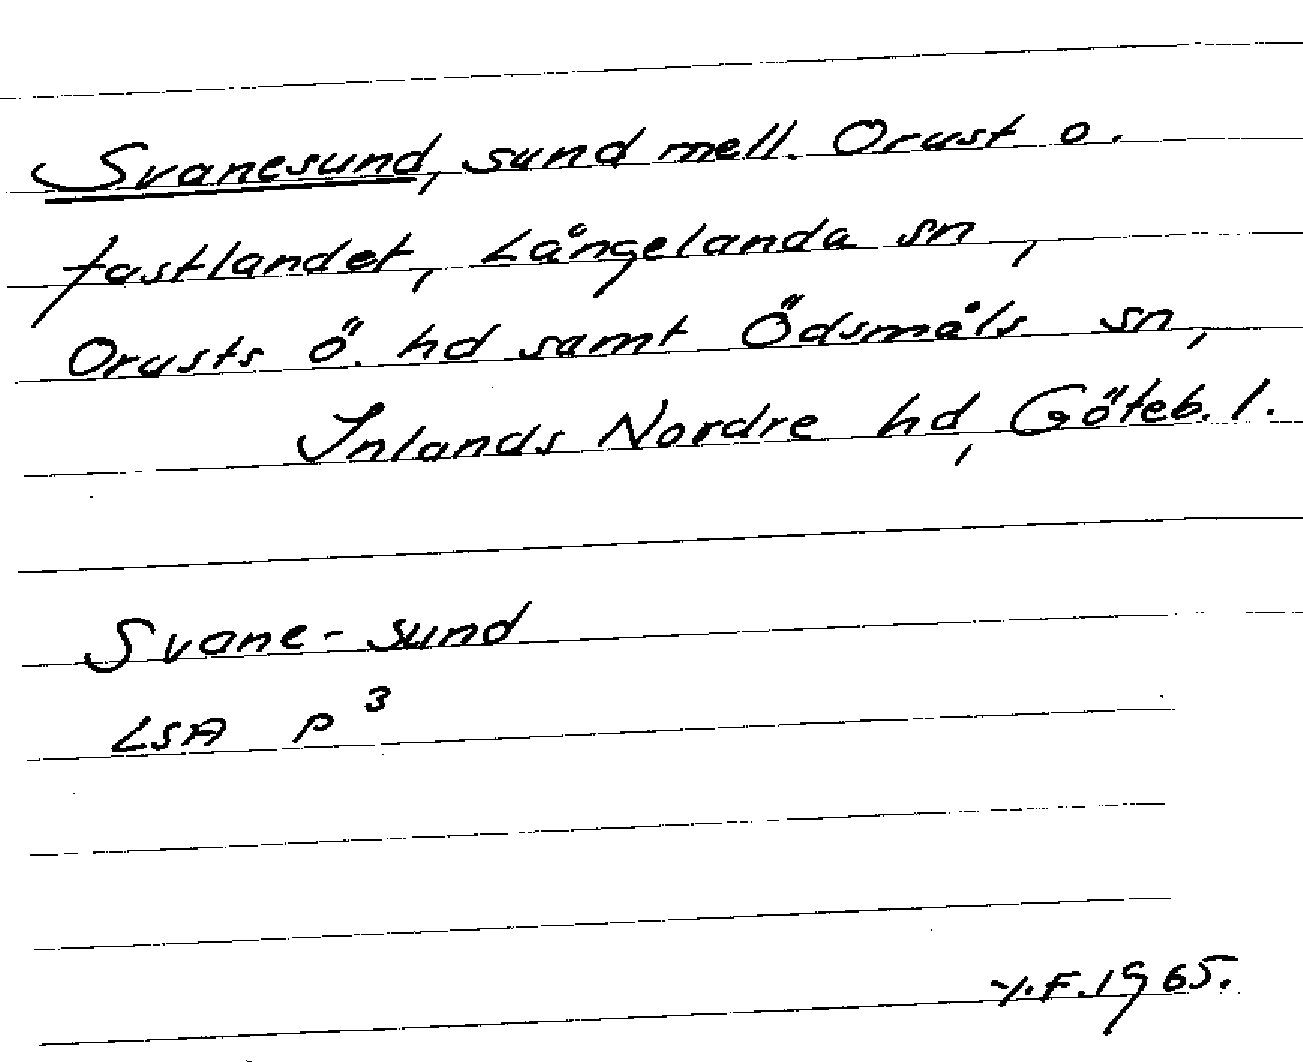 Svanesund, sund mell. Orust o.
fastlandet, Långelanda sn,
Orusts ö. hd samt Ödsmåls sn,
Inlands Nordre hd, Göteb. l.
Svane-sund
LSA P 3
F. 1965.